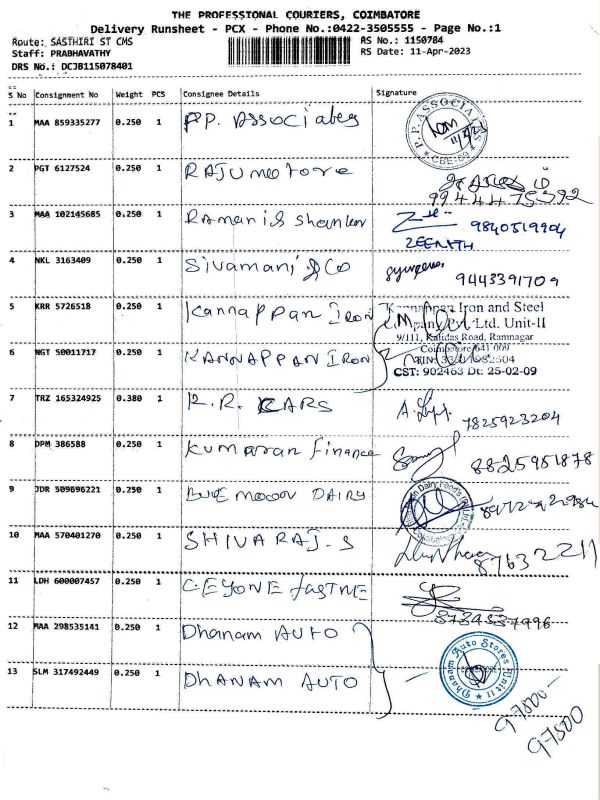 THE PROFESSIONAL COURIERS, COIMBATORE
Delivery Runsheet - PCX - Phone No.:0422-3505555 - Page No.:1
Route: SASTHIRI ST CMS
RS No.: 1150784
Staff: PRABHAVATHY
RS Date: 11-Apr-2023
DRS No.: DCJB115078401
S No Consignment No Weight PCS Consignee Details Signature
1 MAA 859335277 0.250 1 P.P. Associates
P.P. ASSOCIATES
CBE-69
2 PGT 6127524 0.250 1 RAJU meotore
3 MAA 102145685 0.250 1 Ramani & Shanker 9840519904
ZEENATH
4 NKL 3163409 0.250 1 Sivamani & Co 9443391709
5 KRR 5726518 0.250 1 Kannappan IRON
Kannappan Iron and Steel
Company Pvt. Ltd. Unit-II
9/111, Kalidas Road, Ramnagar
6 NGT 50011717 0.250 1 KANNAPPAN IRON
Coimbatore 641 009
CST: 902463 Dt: 25-02-09
7 TRZ 165324925 0.380 1 K.R. CARS 7825923204
8 DPM 386588 0.250 1 Kumaran finance 8825951878
9 JDR 509896221 0.250 1 BLUE MOOON DAIRY
10 MAA 570401270 0.250 1 SHIVARAJ.S
11 LDH 600007457 0.250 1 CEYONE
12 MAA 298535141 0.250 1 Dhanam AUTO
13 SLM 317492449 0.250 1 DHANAM AUTO
Dhanam Auto Stores Unit II
97500
97500